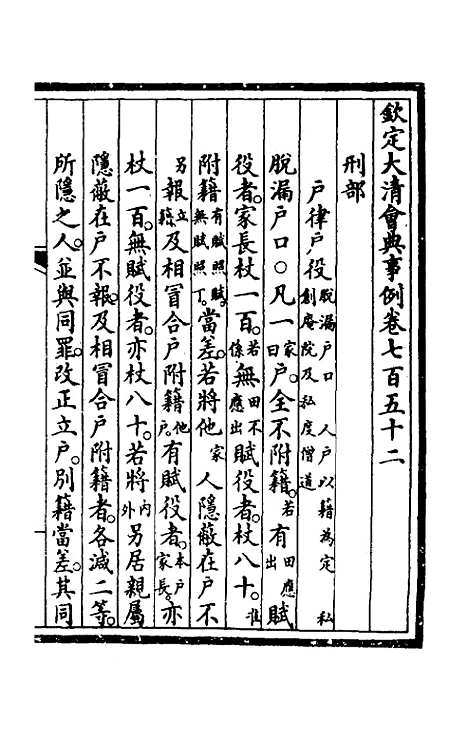 欽定大清會典事例卷七百五十二
刑部
戶律戶役脫漏戶口 人戶以籍為定 私創庵院及私度僧道
脫漏戶口○凡一家曰戶。全不附籍。若有田應出賦
役者。家長杖一百。若係無田不應出賦役者。杖八十。准
附籍有賦照賦無賦照丁。當差。若將他家人隱蔽在戶不
另報立籍。及相冒合戶附籍他戶。有賦役者。本戶家長。亦
杖一百。無賦役者。亦杖八十。若將內外另居親屬
隱蔽在戶不報。及相冒合戶附籍者。各減二等。
所隱之人。並與同罪。改正立戶。別籍當差。其同